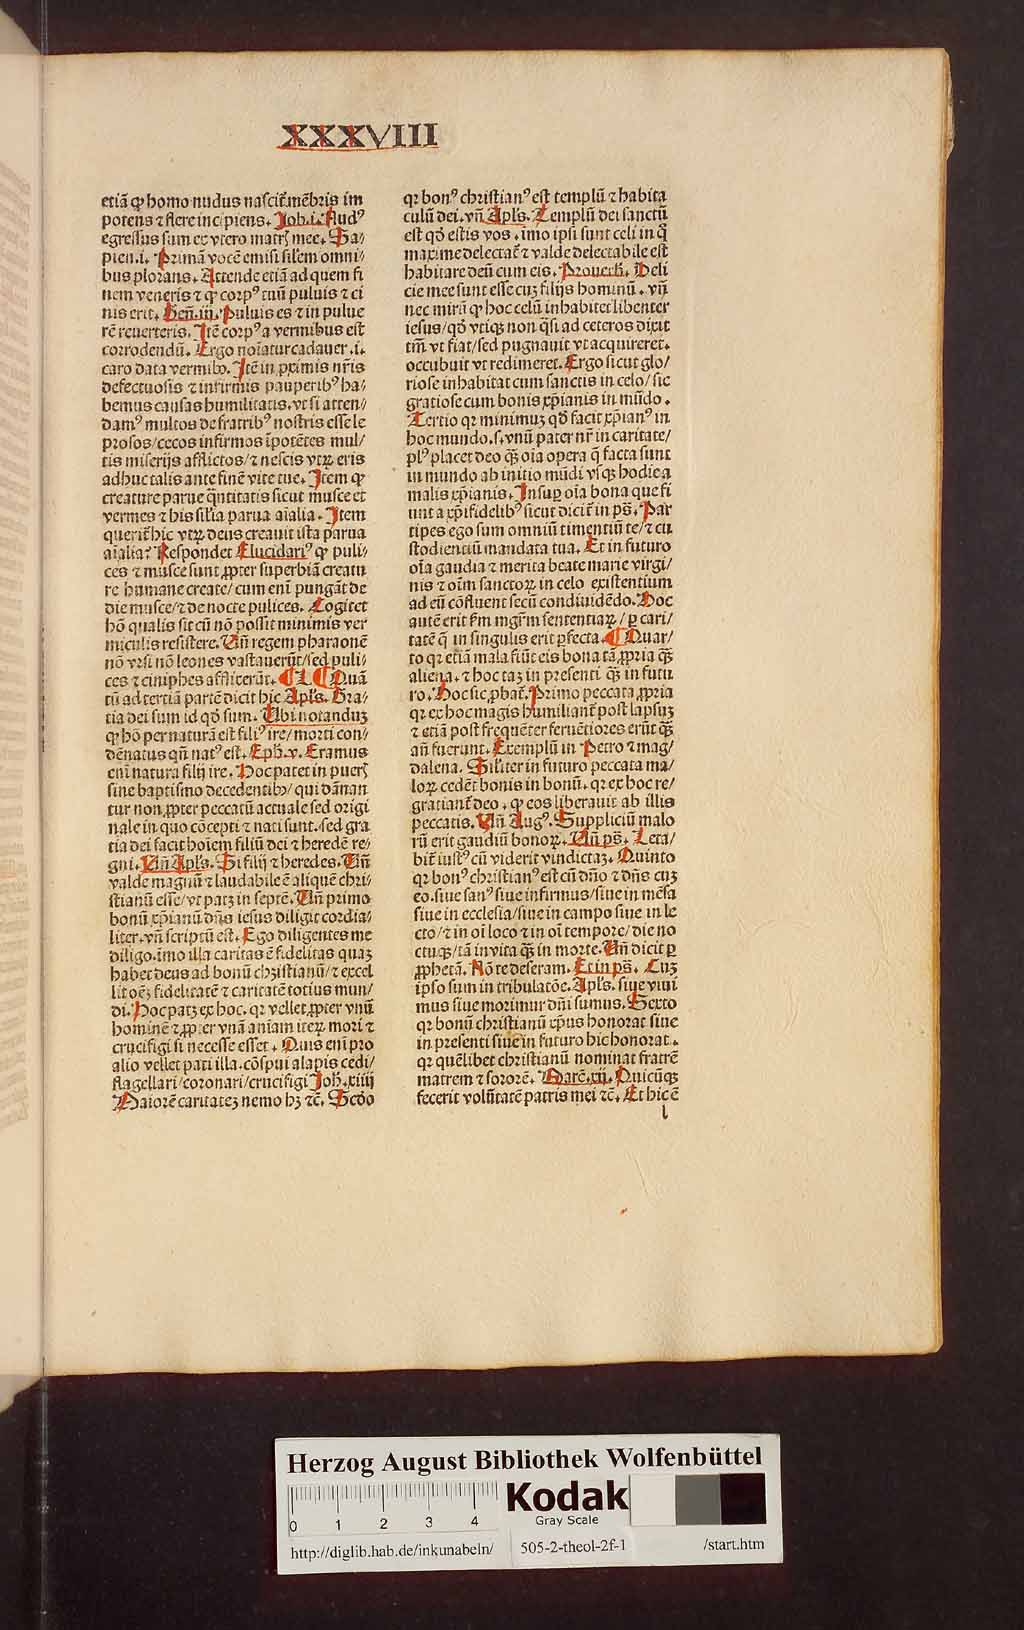 XXXVIII
etiã ꝙ homo nudus nascit᷑.mẽbris im
potens ⁊ flere incipiens. Joh.i. Nudꝰ
egressus sum ex vtero matrꝭ mee. Sa/
pien.i. Primã vocẽ emisi silẽm omni/
bus plorans. Attende etiã ad quem fi
nem veneris ⁊ ꝙ corpꝰ tuũ puluis ⁊ ci
nis erit. Geñ.iij. Puluis es ⁊ in pulue
rẽ reuerteris. Itẽ corpꝰ a vermibus est
corrodendũ. Ergo noĩatur cadauer .i.
caro data vermibꝰ. Itẽ in ꝓximis nr̃is
defectuosis ⁊ infirmis pauperibꝰ ha/
bemus causas humilitatis. vt si atten/
damꝰ multos de fratribꝰ nostris esse le
prosos/cecos infirmos ĩpotẽtes mul/
tis miserijs afflictos/⁊ nescis vtrꝝ eris
adhuc talis ante finẽ vite tue. Item ꝙ
creature parue q̃ntitatis sicut musce et
vermes ⁊ his sil̃ia parua aĩalia. Item
querit᷑ hic vtrꝝ deus creauit ista parua
aĩalia? Respondet Elucidariꝰ ꝙ puli/
ces ⁊ musce sunt ꝓpter superbiã creatu
re humane create/cum eni͂ pungãt de
die musce/⁊ de nocte pulices. Cogitet
hõ qualis sit cũ nõ possit minimis ver
miculis resistere. Vñ regem pharaonẽ
nõ vrsi nõ leones vastauerũt/sed puli/
ces ⁊ ciniphes afflixerũt. ¶ L ¶ Quã
tũ ad tertiã partẽ dicit hic Apl̃s. Gra/
tia dei sum id qđ sum. Vbi notanduȝ
ꝙ hõ per naturã est filiꝰ ire/morti con/
dẽnatus qñ natꝰ est. Eph.v. Eramus
eni͂ natura filij ire. Hoc patet in puerꝭ
sine baptismo decedentibꝰ/qui dãnan
tur non ꝓpter peccatũ actuale sed origi
nale in quo cõcepti ⁊ nati sunt. sed gra
tia dei facit hoĩem filiũ dei ⁊ heredẽ re/
gni. Vñ Apl̃s. Si filij ⁊ heredes. Vñ
valde magnũ ⁊ laudabile ẽ aliquẽ chri/
stianũ esse/vt patȝ in septẽ. Vñ primo
bonũ xp̃ianũ dñs iesus diligit cordia/
liter. vñ scriptũ est. Ego diligentes me
diligo. ĩmo illa caritas ẽ fidelitas quaȝ
habet deus ad bonũ christianũ/⁊ excel
lit oẽȝ fidelitatẽ ⁊ caritatẽ totius mun/
di. Hoc patȝ ex hoc. qꝛ vellet ꝓpter vnũ
hominẽ ⁊ ꝓpter vnã anĩam iterꝝ mori ⁊
crucifigi si necesse esset. Quis eni͂ pro
alio vellet pati illa. cõspui alapis cedi/
flagellari/coronari/crucifigi Joh.xiiij
Maiorẽ caritateȝ nemo hȝ ⁊c̃. Scđo
qꝛ bonꝰ christianꝰ est templũ ⁊ habita
culũ dei. vñ Apl̃s. Templũ dei sanctũ
est qđ estis vos. imo ipsi sunt celi in q̃
maxime delectat᷑ ⁊ valde delectabile est
habitare deũ cum eis. Prouerb̃. Deli
cie mee sunt esse cuȝ filijs hominũ. vñ
nec mirũ ꝙ hoc celũ inhabitet libenter
iesus/qđ vtiqꝫ non q̃si ad ceteros dixit
tm̃ vt fiat/sed pugnauit vt acquireret.
occubuit vt redimeret. Ergo sicut glo/
riose inhabitat cum sanctis in celo/sic
gratiose cum bonis xp̃ianis in mũdo.
Tertio qꝛ minimuȝ qđ facit xp̃ianꝰ in
hoc mundo. s. vnũ pater nr̃ in caritate/
plꝰ placet deo q̃ꝫ oĩa opera q̃ facta sunt
in mundo ab initio mũdi vsqꝫ hodie a
malis xp̃ianis. Insuꝑ oĩa bona que fi
unt a xp̃ifidelibꝰ sicut dicit᷑ in ps̃. Par
tipes ego sum omniũ timentiũ te/⁊ cu
stodientiũ mandata tua. Et in futuro
oĩa gaudia ⁊ merita beate marie virgi/
nis ⁊ oĩm sanctoꝝ in celo existentium
ad eũ cõfluent secũ condiuidẽdo. Hoc
autẽ erit ẜm mgr̃m sententiaꝝ/ꝑ cari/
tatẽ q̃ in singulis erit ꝑfecta. ¶ Quar/
to qꝛ etiã mala fiũt eis bona tã ꝓpria q̃ꝫ
aliena. ⁊ hoc taȝ in presenti q̃ꝫ in futu
ro. Hoc sic ꝓbat᷑. Primo peccata ꝓpria
qꝛ ex hoc magis humiliant᷑ post lapsuȝ
⁊ etiã post frequẽter feruẽtiores erũt q̃ꝫ
añ fuerunt. Exemplũ in Petro ⁊ mag/
dalena. Sil̃iter in futuro peccata ma/
loꝝ cedẽt bonis in bonũ. qꝛ ex hoc re/
gratiant᷑ deo. ꝙ eos liberauit ab illis
peccatis. Vñ Augꝰ. Suppliciũ malo
rũ erit gaudiũ bonoꝝ. Vñ ps̃. Leta/
bit᷑ iustꝰ cũ viderit vindictaȝ. Quinto
qꝛ bonꝰ christianꝰ est cũ dño ⁊ dñs cuȝ
eo. siue sanꝰ siue infirmus/siue in mẽsa
siue in ecclesia/siue in campo siue in le
cto/⁊ in oĩ loco ⁊ in oĩ tempore/die no
ctuqꝫ/tã in vita q̃ꝫ in morte. Vñ dicit ꝑ
ꝓphetã. Nõ te deseram. Et in ps̃. Cuȝ
ipso sum in tribulatõe. Apl̃s. siue viui
mus siue morimur dñi sumus. Sexto
qꝛ bonũ christianũ xp̃us honorat siue
in presenti siue in futuro hic honorat.
qꝛ quẽlibet christianũ nominat fratrẽ
matrem ⁊ sororẽ. Marc̃.xij. Quicũqꝫ
fecerit volũtatẽ patris mei ⁊c̃. Et hic ẽ
l
Herzog August Bibliothek Wolfenbüttel
0 1 2 3 4
Kodak
Gray Scale
http://diglib.hab.de/inkunabeln/ 505-2-theol-2f-1 /start.htm